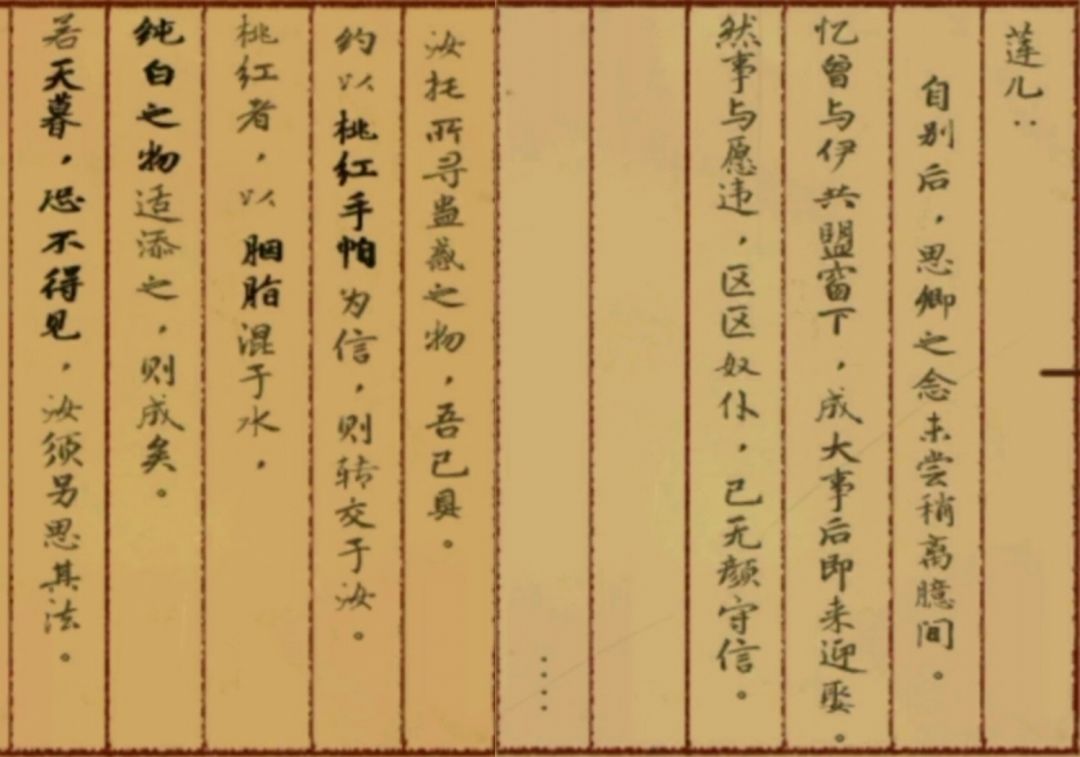 莲儿：
自别后，思卿之念未尝稍离臆间。
忆曾与伊共盟窗下，成大事后即来迎娶。
然事与愿违，区区奴仆，已无颜守信。
....
汝托所寻蛊惑之物，吾已具。
约以桃红手帕为信，则转交于汝。
桃红者，以胭脂混于水，
纯白之物适添之，则成矣。
若天暮，恐不得见，汝须另思其法。